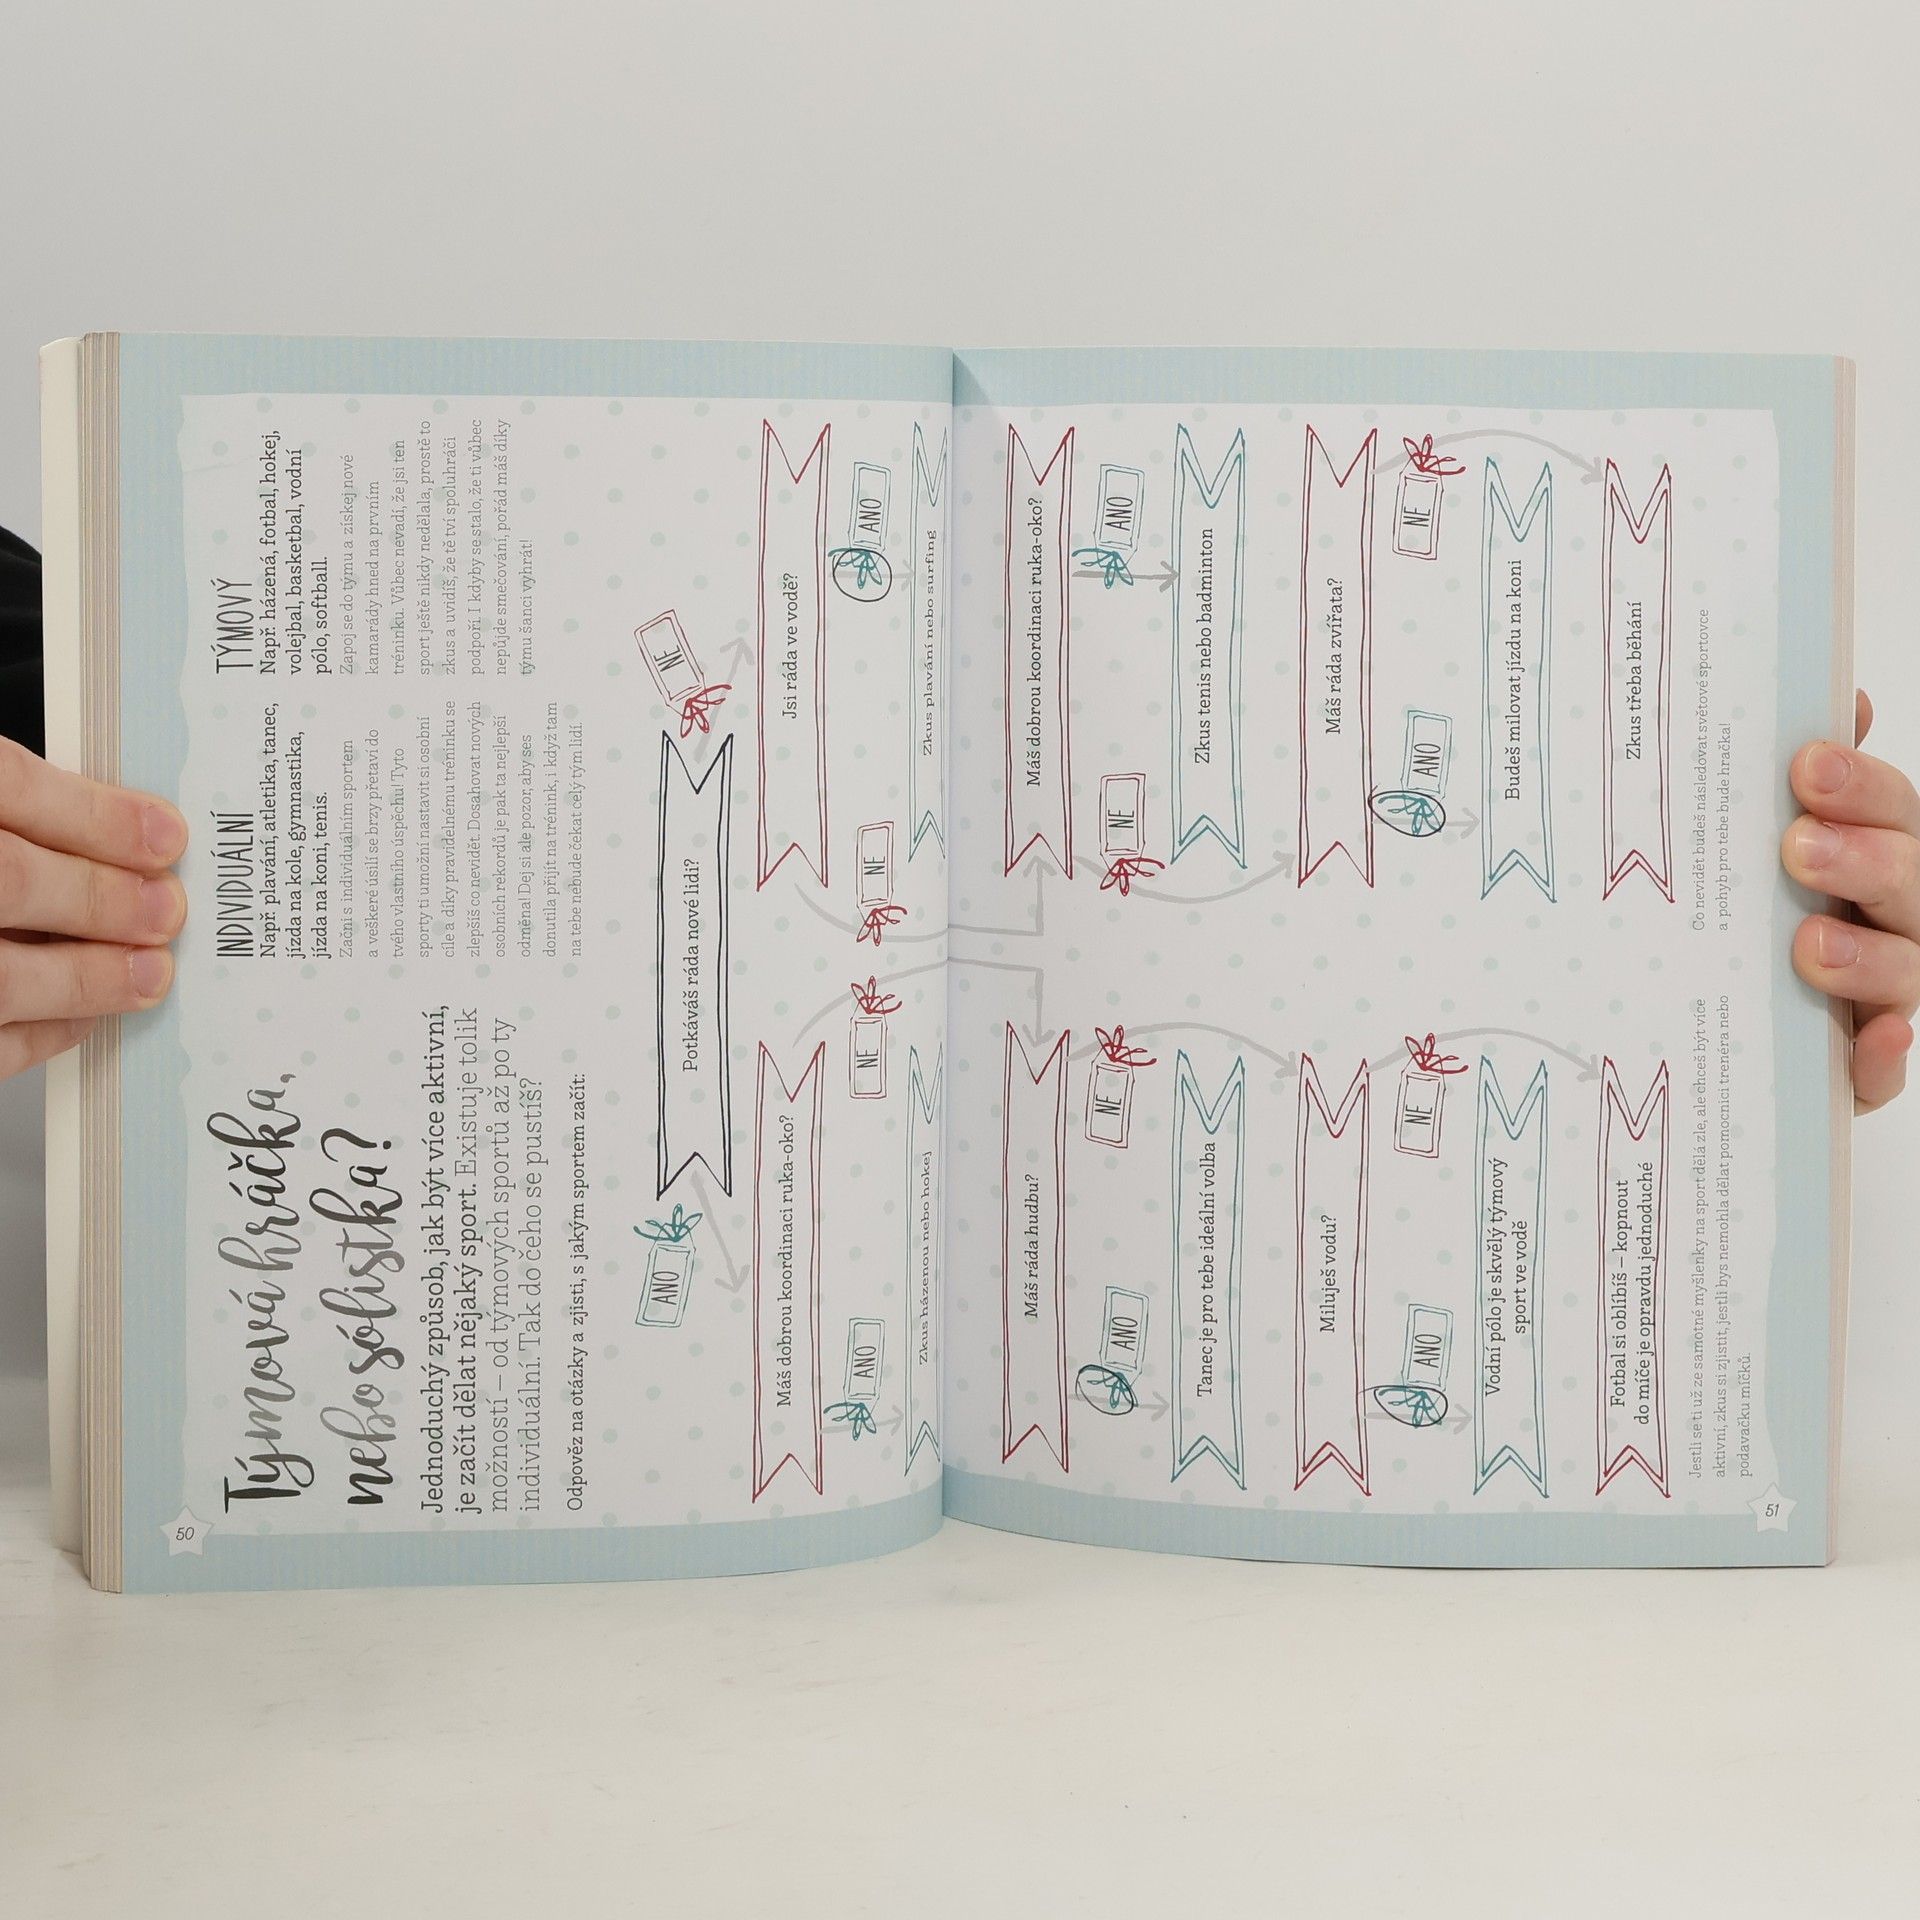 50
Týmová hráčka,
nebo sólistka?
Jednoduchý způsob, jak být více aktivní,
je začít dělat nějaký sport. Existuje tolik
možností – od týmových sportů až po ty
individuální. Tak do čeho se pustíš?
Odpověz na otázky a zjisti, s jakým sportem začít:
INDIVIDUÁLNÍ
Např. plavání, atletika, tanec,
jízda na kole, gymnastika,
jízda na koni, tenis.
Začni s individuálním sportem
a veškeré úsilí se brzy přetaví do
tvého vlastního úspěchu! Tyto
sporty ti umožní nastavit si osobní
cíle a díky pravidelnému tréninku se
zlepšíš co nevidět. Dosahovat nových
osobních rekordů je pak ta nejlepší
odměna! Dej si ale pozor, aby ses
donutila přijít na trénink, i když tam
na tebe nebude čekat celý tým lidí.
TÝMOVÝ
Např. házená, fotbal, hokej,
volejbal, basketbal, vodní
pólo, softball.
Zapoj se do týmu a získej nové
kamarády hned na prvním
tréninku. Vůbec nevadí, že jsi ten
sport ještě nikdy nedělala, prostě to
zkus a uvidíš, že tě tví spoluhráči
podpoří. I kdyby se stalo, že ti vůbec
nepůjde smečování, pořád máš díky
týmu šanci vyhrát!
Potkáváš ráda nové lidi?
ANO
NE
Máš dobrou koordinaci ruka-oko?
Jsi ráda ve vodě?
ANO
NE
NE
ANO
Zkus házenou nebo hokej
Zkus plavání nebo surfing
Máš ráda hudbu?
Máš dobrou koordinaci ruka-oko?
ANO
NE
NE
ANO
Tanec je pro tebe ideální volba
Zkus tenis nebo badminton
Miluješ vodu?
Máš ráda zvířata?
ANO
NE
ANO
NE
Vodní pólo je skvělý týmový
sport ve vodě
Budeš milovat jízdu na koni
Fotbal si oblíbíš – kopnout
do míče je opravdu jednoduché
Zkus třeba běhání
Jestli se ti už ze samotné myšlenky na sport dělá zle, ale chceš být více
aktivní, zkus si zjistit, jestli bys nemohla dělat pomocnici trenéra nebo
podavačku míčků.
Co nevidět budeš následovat světové sportovce
a pohyb pro tebe bude hračka!
51